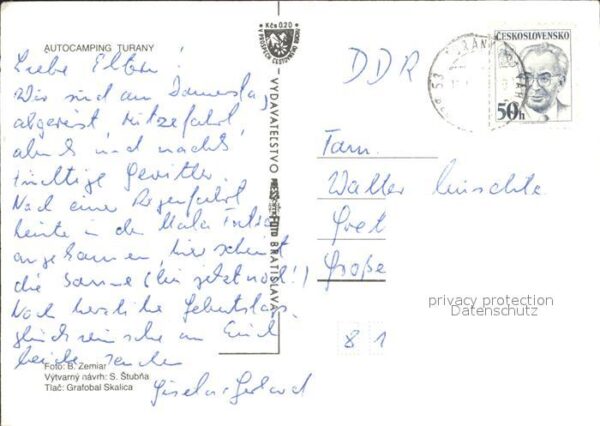 AUTOCAMPING TURANY
Liebe Eltern!
Wir sind am Donnerstag
abgereist, Hitzefahrt,
abends und nachts
tüchtige Gewitter.
Nach einer Regenfahrt
heute in der Mala Fatra
angekommen, hier scheint
die Sonne (bis jetzt noch!)
Noch herzliche Geburtstags-
glückwünsche an Euch
beide senden
Gisela + Gerhard
Foto: B. Zemiar
Výtvarný návrh: S. Štubňa
Tlač: Grafobal Skalica
Kčs 0,20
VYDAVATEĽSTVO
BRATISLAVA
ČESKOSLOVENSKO
50h
DDR
Fam.
Walter
Große
privacy protection
Datenschutz
8 1